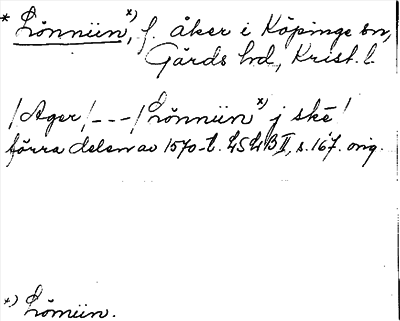 * Lönniin *), f. åker i Köpinge sn,
Gärds hd, Krist. l.
/Ager/---/Lönniin *) j skē/
förra delen av 1570-t. LSLB II, s. 167. orig.
*) Lömiin.